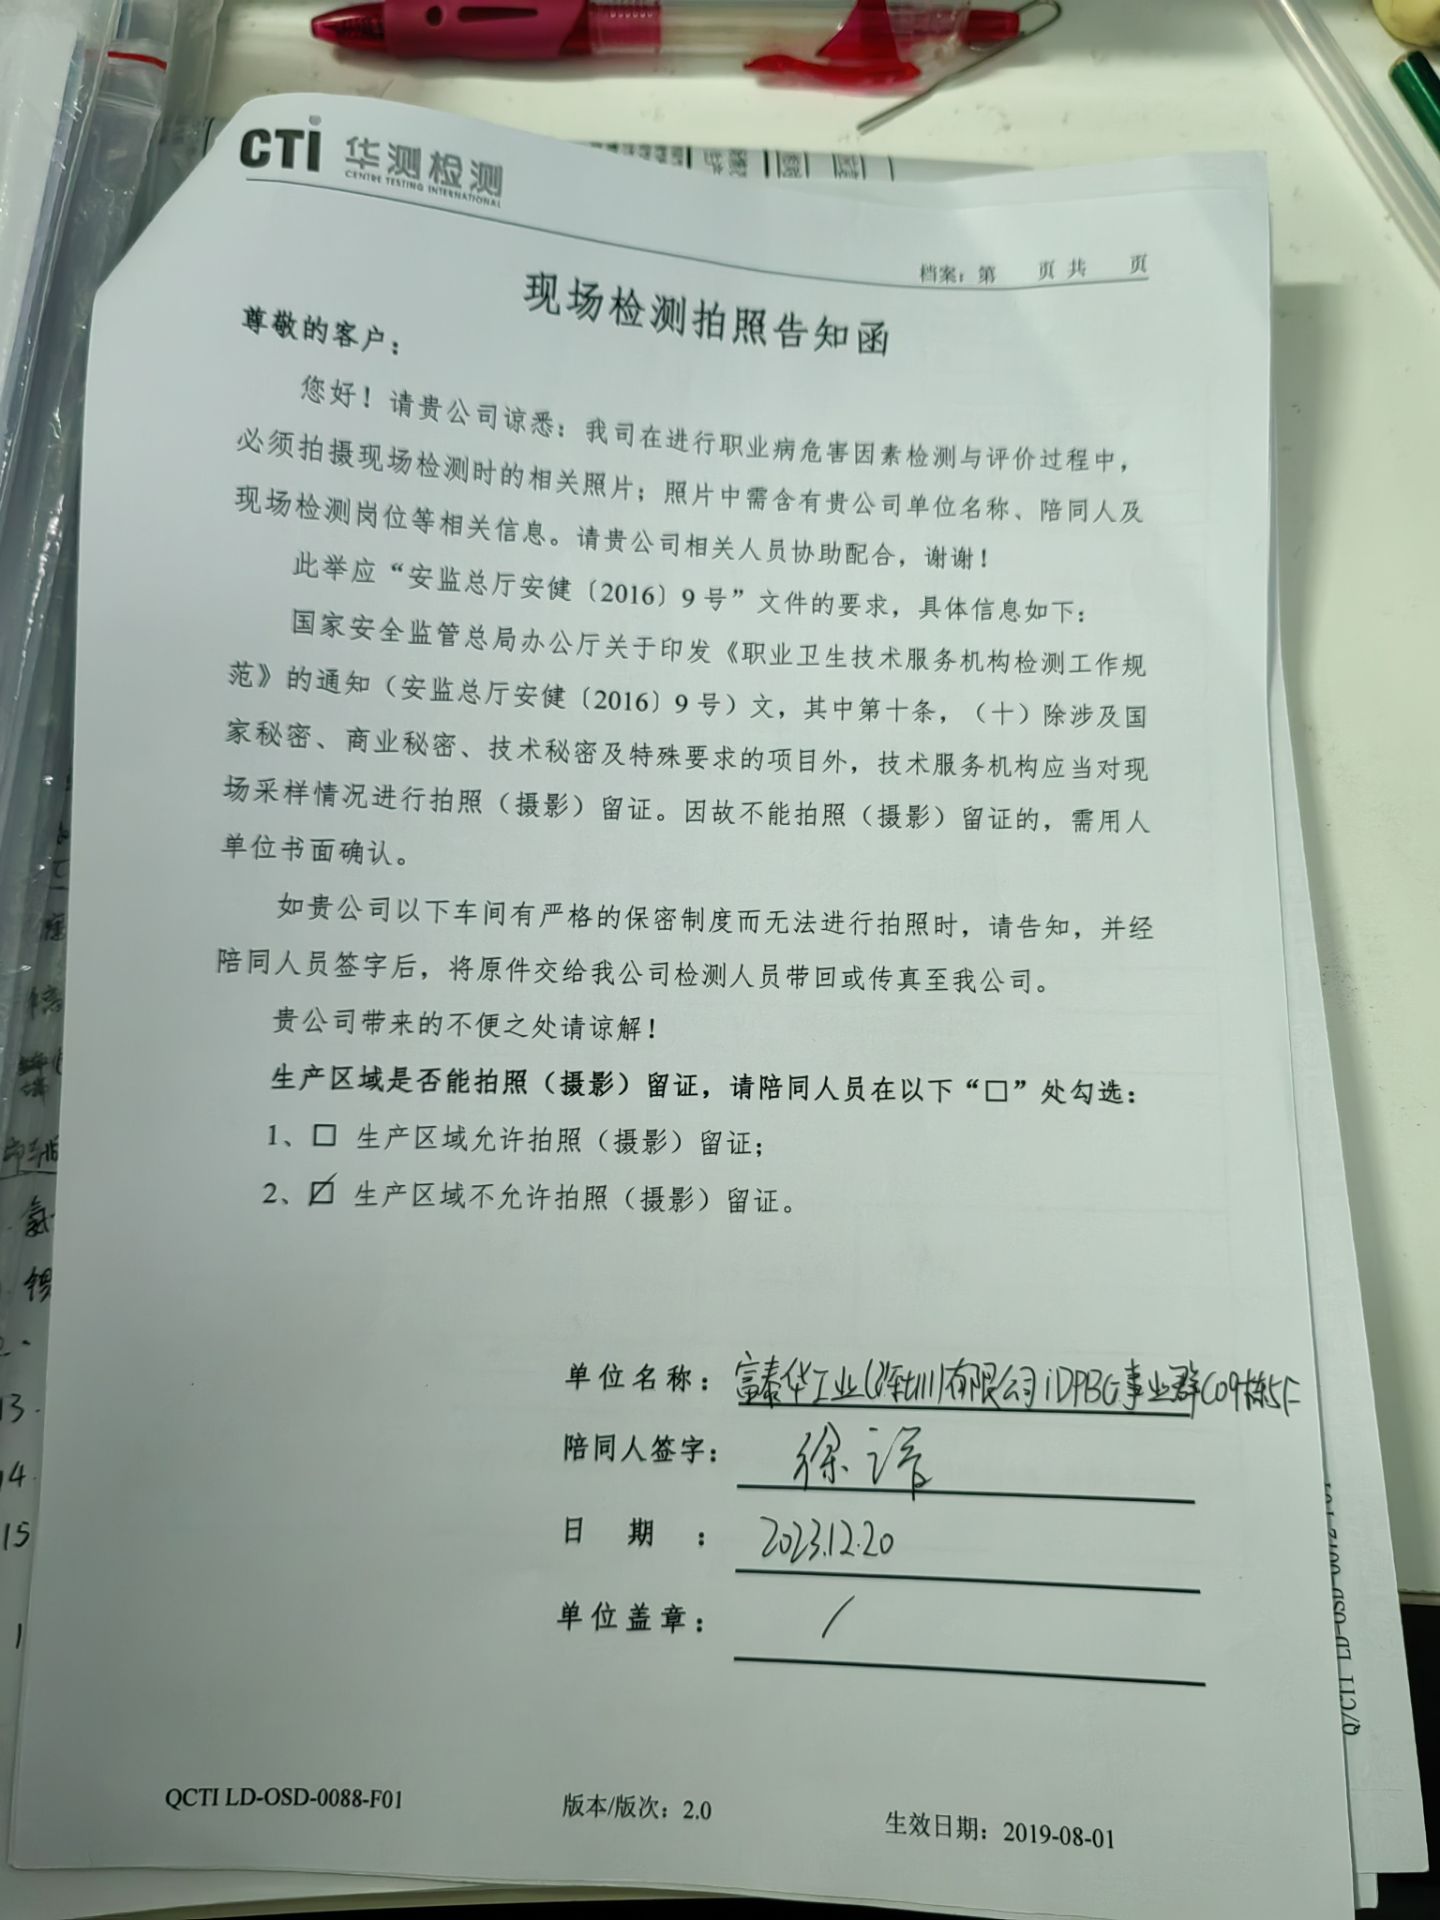 CTI 华测检测
CENTRE TESTING INTERNATIONAL
档案：第 页 共 页
现场检测拍照告知函
尊敬的客户：
您好！请贵公司谅悉：我司在进行职业病危害因素检测与评价过程中，
必须拍摄现场检测时的相关照片；照片中需含有贵公司单位名称、陪同人及
现场检测岗位等相关信息。请贵公司相关人员协助配合，谢谢！
此举应“安监总厅安健〔2016〕9 号”文件的要求，具体信息如下：
国家安全监管总局办公厅关于印发《职业卫生技术服务机构检测工作规
范》的通知（安监总厅安健〔2016〕9 号）文，其中第十条，（十）除涉及国
家秘密、商业秘密、技术秘密及特殊要求的项目外，技术服务机构应当对现
场采样情况进行拍照（摄影）留证。因故不能拍照（摄影）留证的，需用人
单位书面确认。
如贵公司以下车间有严格的保密制度而无法进行拍照时，请告知，并经
陪同人员签字后，将原件交给我公司检测人员带回或传真至我公司。
贵公司带来的不便之处请谅解！
生产区域是否能拍照（摄影）留证，请陪同人员在以下“□”处勾选：
1、□ 生产区域允许拍照（摄影）留证；
2、☑ 生产区域不允许拍照（摄影）留证。
单位名称：富泰华工业(深圳)有限公司iDPBG事业群C09栋5F
陪同人签字：徐
日 期 ：2023.12.20
单位盖章：/
QCTI LD-OSD-0088-F01 版本/版次：2.0 生效日期：2019-08-01
13.
14.
15